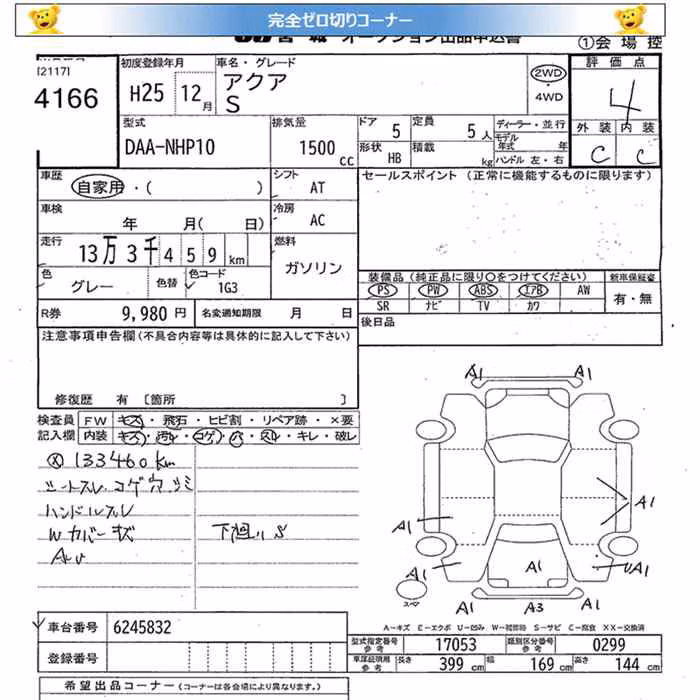 完全ゼロ切りコーナー
オークション出品申込書
①会場控
[2117]
4166
初度登録年月
H25 12月
車名・グレード
アクア
S
2WD
・
4WD
評価点
4
外装 内装
C C
型式
DAA-NHP10
排気量
1500 cc
ドア 5
定員 5人
形状 HB
積載 kg
ディーラー・並行
モデル年式 年
ハンドル 左・右
車歴
自家用・( )
シフト
AT
セールスポイント (正常に機能するものに限ります)
車検
年 月( 日)
冷房
AC
走行
13万3千459km
燃料
ガソリン
色
グレー
色替
色コード
1G3
装備品(純正品に限り○をつけてください)
新車保証書
PS PW ABS エアB AW
SR ナビ TV カワ
有・無
R券 9,980円
名変通知期限 月 日
後日品
注意事項申告欄(不具合内容等は具体的に記入して下さい)
修復歴 有 〔箇所 〕
検査員
記入欄
FW キズ・飛石・ヒビ割・リペア跡・×要
内装 キズ・汚れ・コゲ・穴・スレ・キレ・破レ
ⓧ 133460km
シートスレ・コゲ穴・シミ
ハンドルスレ
Wカバーキズ
下廻りS
A1 A1
A1
A1
A1
A1 A1
A1 A3 A1
スペア
A－キズ E－エクボ U－凹み W－補修跡 S－サビ C－腐食 XX－交換済
車台番号 6245832
登録番号
型式指定番号
参考
17053
類別区分番号
参考
0299
車庫証明用
参考
長さ 399 cm
幅 169 cm
高さ 144 cm
希望出品コーナー(コーナーは各会場により異なります。)